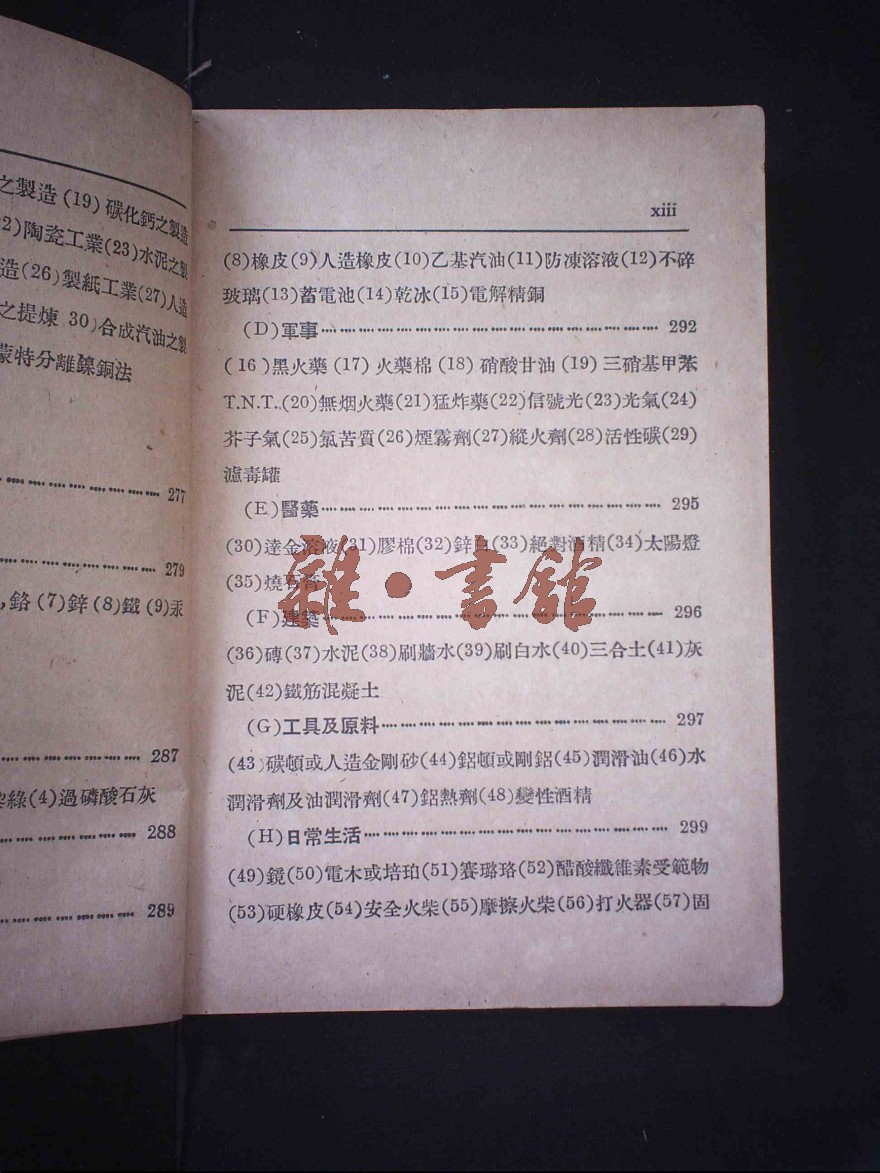 之製造(19)碳化鈣之製造
2)陶瓷工業(23)水泥之製
造(26)製紙工業(27)人造
之提煉 30)合成汽油之製
蒙特分離鎳銅法
277
279
,鉻(7)鋅(8)鐵(9)汞
287
綠(4)過磷酸石灰
288
289
xiii
(8)橡皮(9)人造橡皮(10)乙基汽油(11)防凍溶液(12)不碎
玻璃(13)蓄電池(14)乾冰(15)電解精銅
(D)軍事 292
(16)黑火藥(17)火藥棉(18)硝酸甘油(19)三硝基甲苯
T.N.T.(20)無烟火藥(21)猛炸藥(22)信號光(23)光氣(24)
芥子氣(25)氯苦質(26)煙霧劑(27)縱火劑(28)活性碳(29)
濾毒罐
(E)醫藥 295
(30)達金溶液(31)膠棉(32)鋅白(33)絕對酒精(34)太陽燈
(35)燒石膏
(F)建築 296
(36)磚(37)水泥(38)刷牆水(39)刷白水(40)三合土(41)灰
泥(42)鐵筋混凝土
(G)工具及原料 297
(43)碳頓或人造金剛砂(44)鋁頓或剛鋁(45)潤滑油(46)水
潤滑劑及油潤滑劑(47)鋁熱劑(48)變性酒精
(H)日常生活 299
(49)鏡(50)電木或培珀(51)賽璐珞(52)醋酸纖維素受範物
(53)硬橡皮(54)安全火柴(55)摩擦火柴(56)打火器(57)固
雜·書館